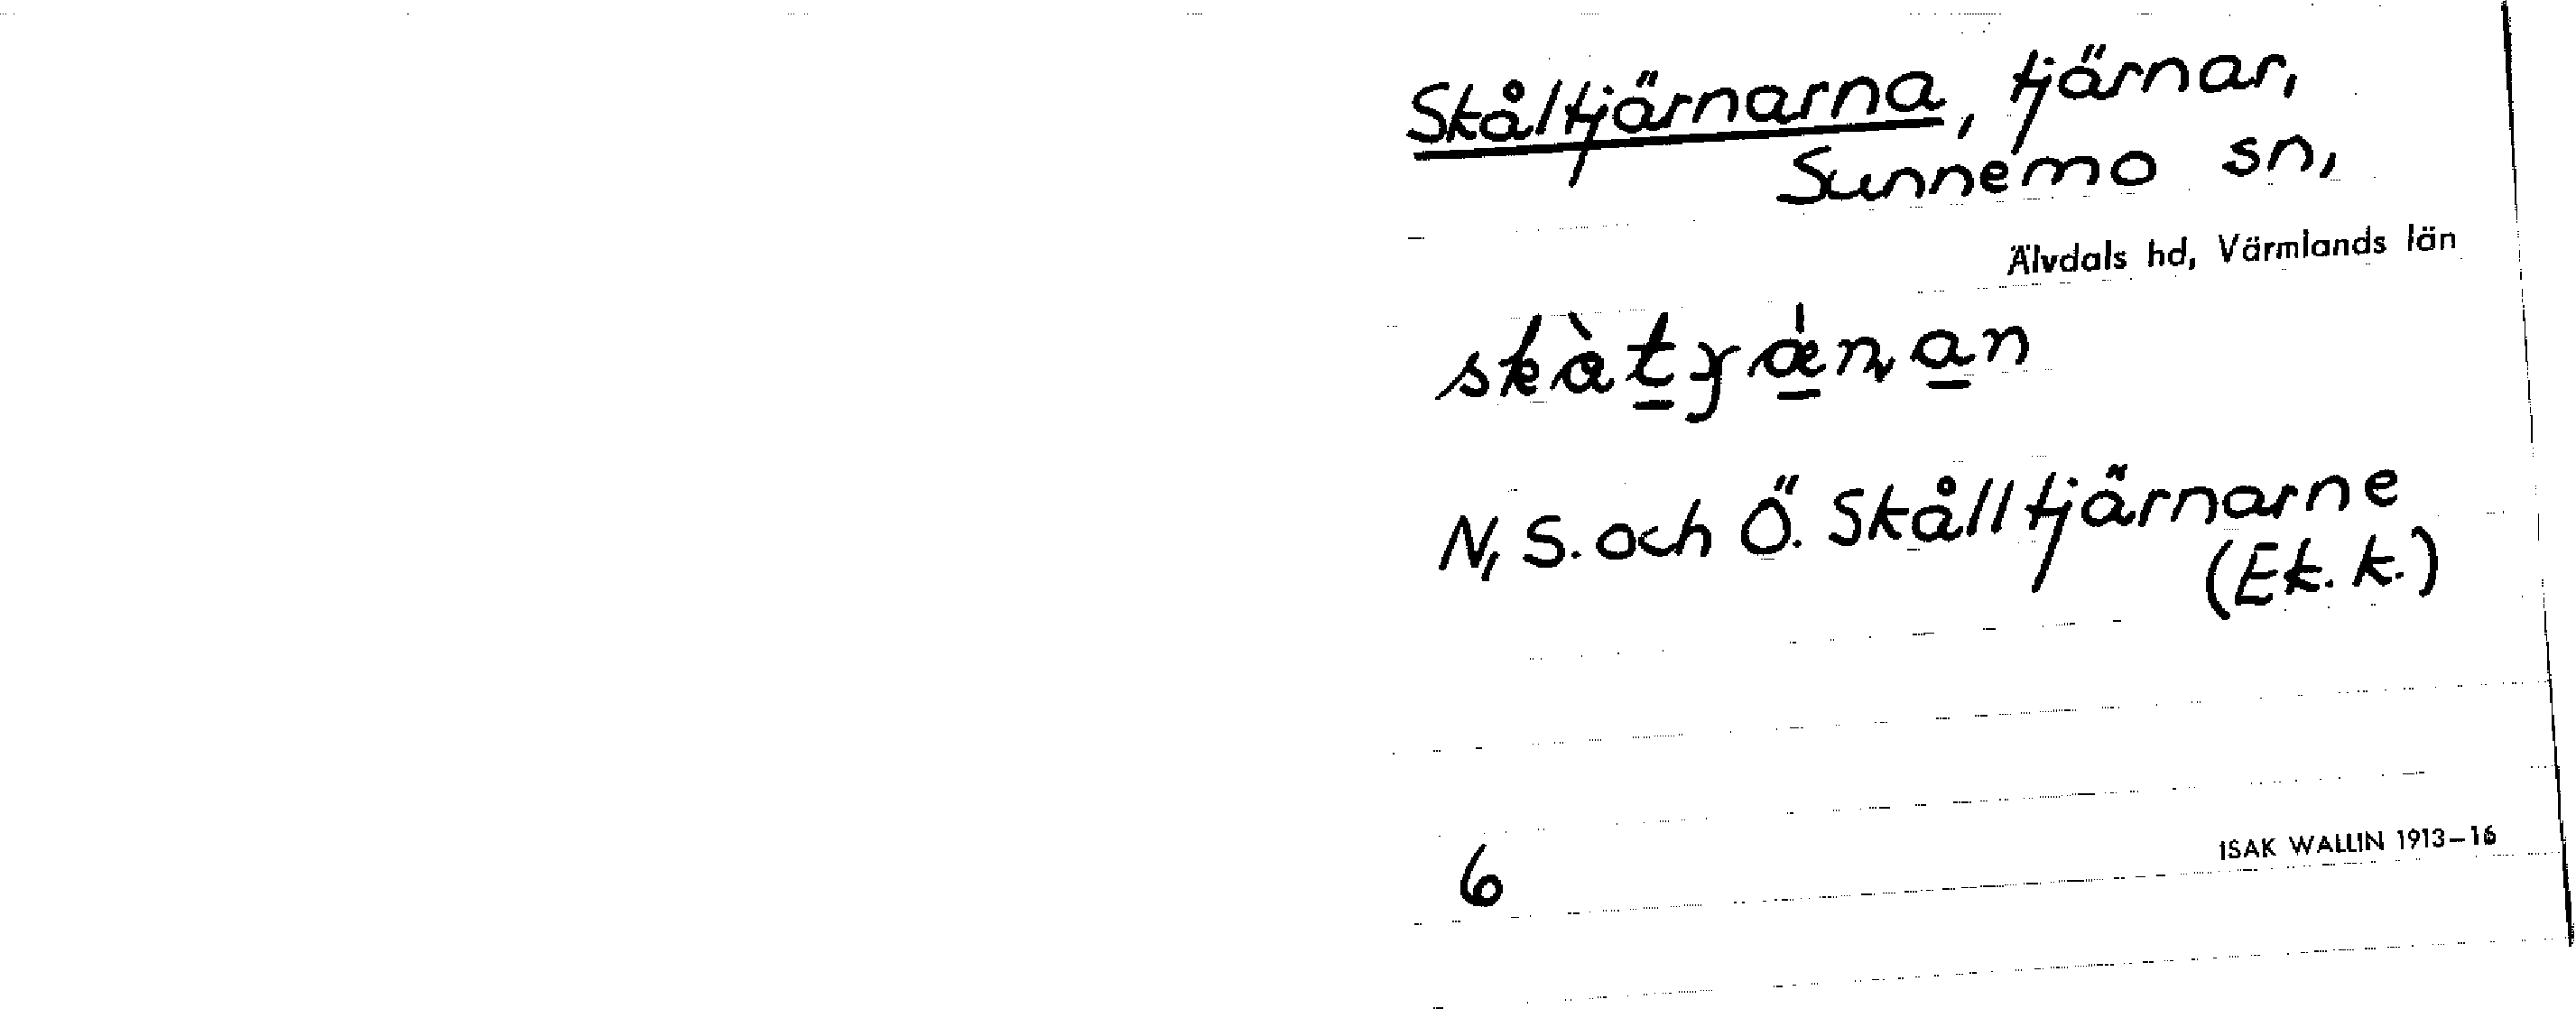 Skåltjärnarna, tjärnar,
Sunnemo sn,
Älvdals hd, Värmlands län
N, S. och Ö. Skålltjärnarne
(Ek. k.)
6
ISAK WALLIN 1913–16